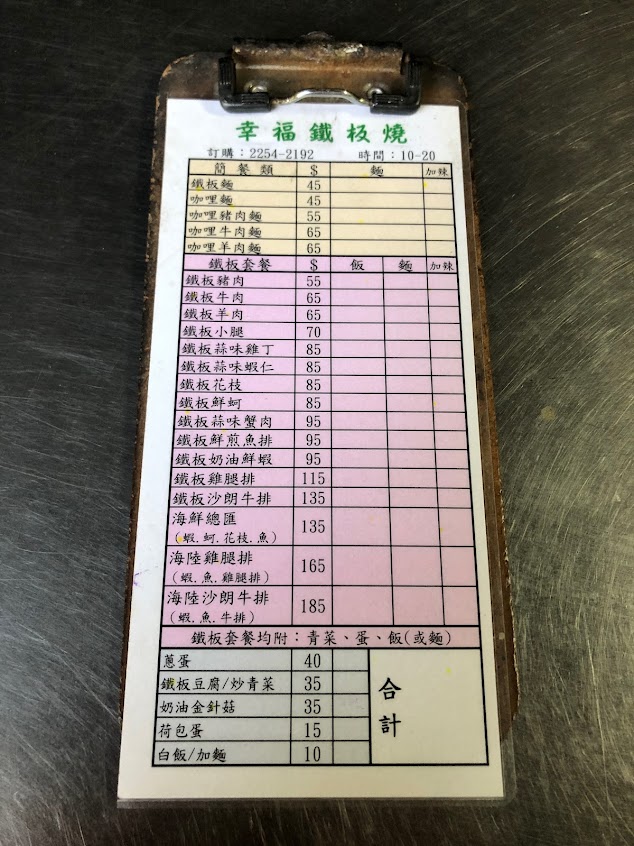 幸福鐵板燒
訂購：2254-2192 時間：10-20
簡餐類 $ 麵 加辣
鐵板麵 45
咖哩麵 45
咖哩豬肉麵 55
咖哩牛肉麵 65
咖哩羊肉麵 65
鐵板套餐 $ 飯 麵 加辣
鐵板豬肉 55
鐵板牛肉 65
鐵板羊肉 65
鐵板小腿 70
鐵板蒜味雞丁 85
鐵板蒜味蝦仁 85
鐵板花枝 85
鐵板鮮蚵 85
鐵板蒜味蟹肉 95
鐵板鮮煎魚排 95
鐵板奶油鮮蝦 95
鐵板雞腿排 115
鐵板沙朗牛排 135
海鮮總匯 135
(蝦.蚵.花枝.魚)
海陸雞腿排 165
(蝦.魚.雞腿排)
海陸沙朗牛排 185
(蝦.魚.牛排)
鐵板套餐均附：青菜、蛋、飯(或麵)
蔥蛋 40
鐵板豆腐/炒青菜 35
奶油金針菇 35
荷包蛋 15
白飯/加麵 10
合計